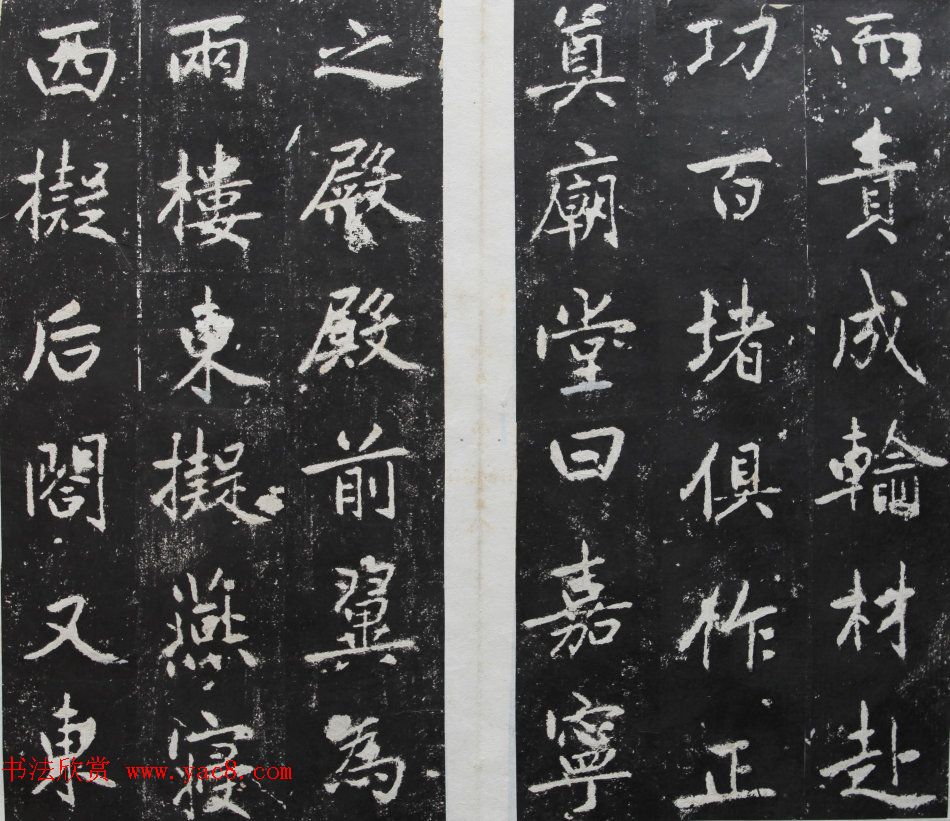 而責成輪材赴
功百堵俱作正
奠廟堂曰嘉寧
之殿殿前翼為
兩樓東擬燕寢
西擬后閣又東
书法欣赏 www.yac8.com